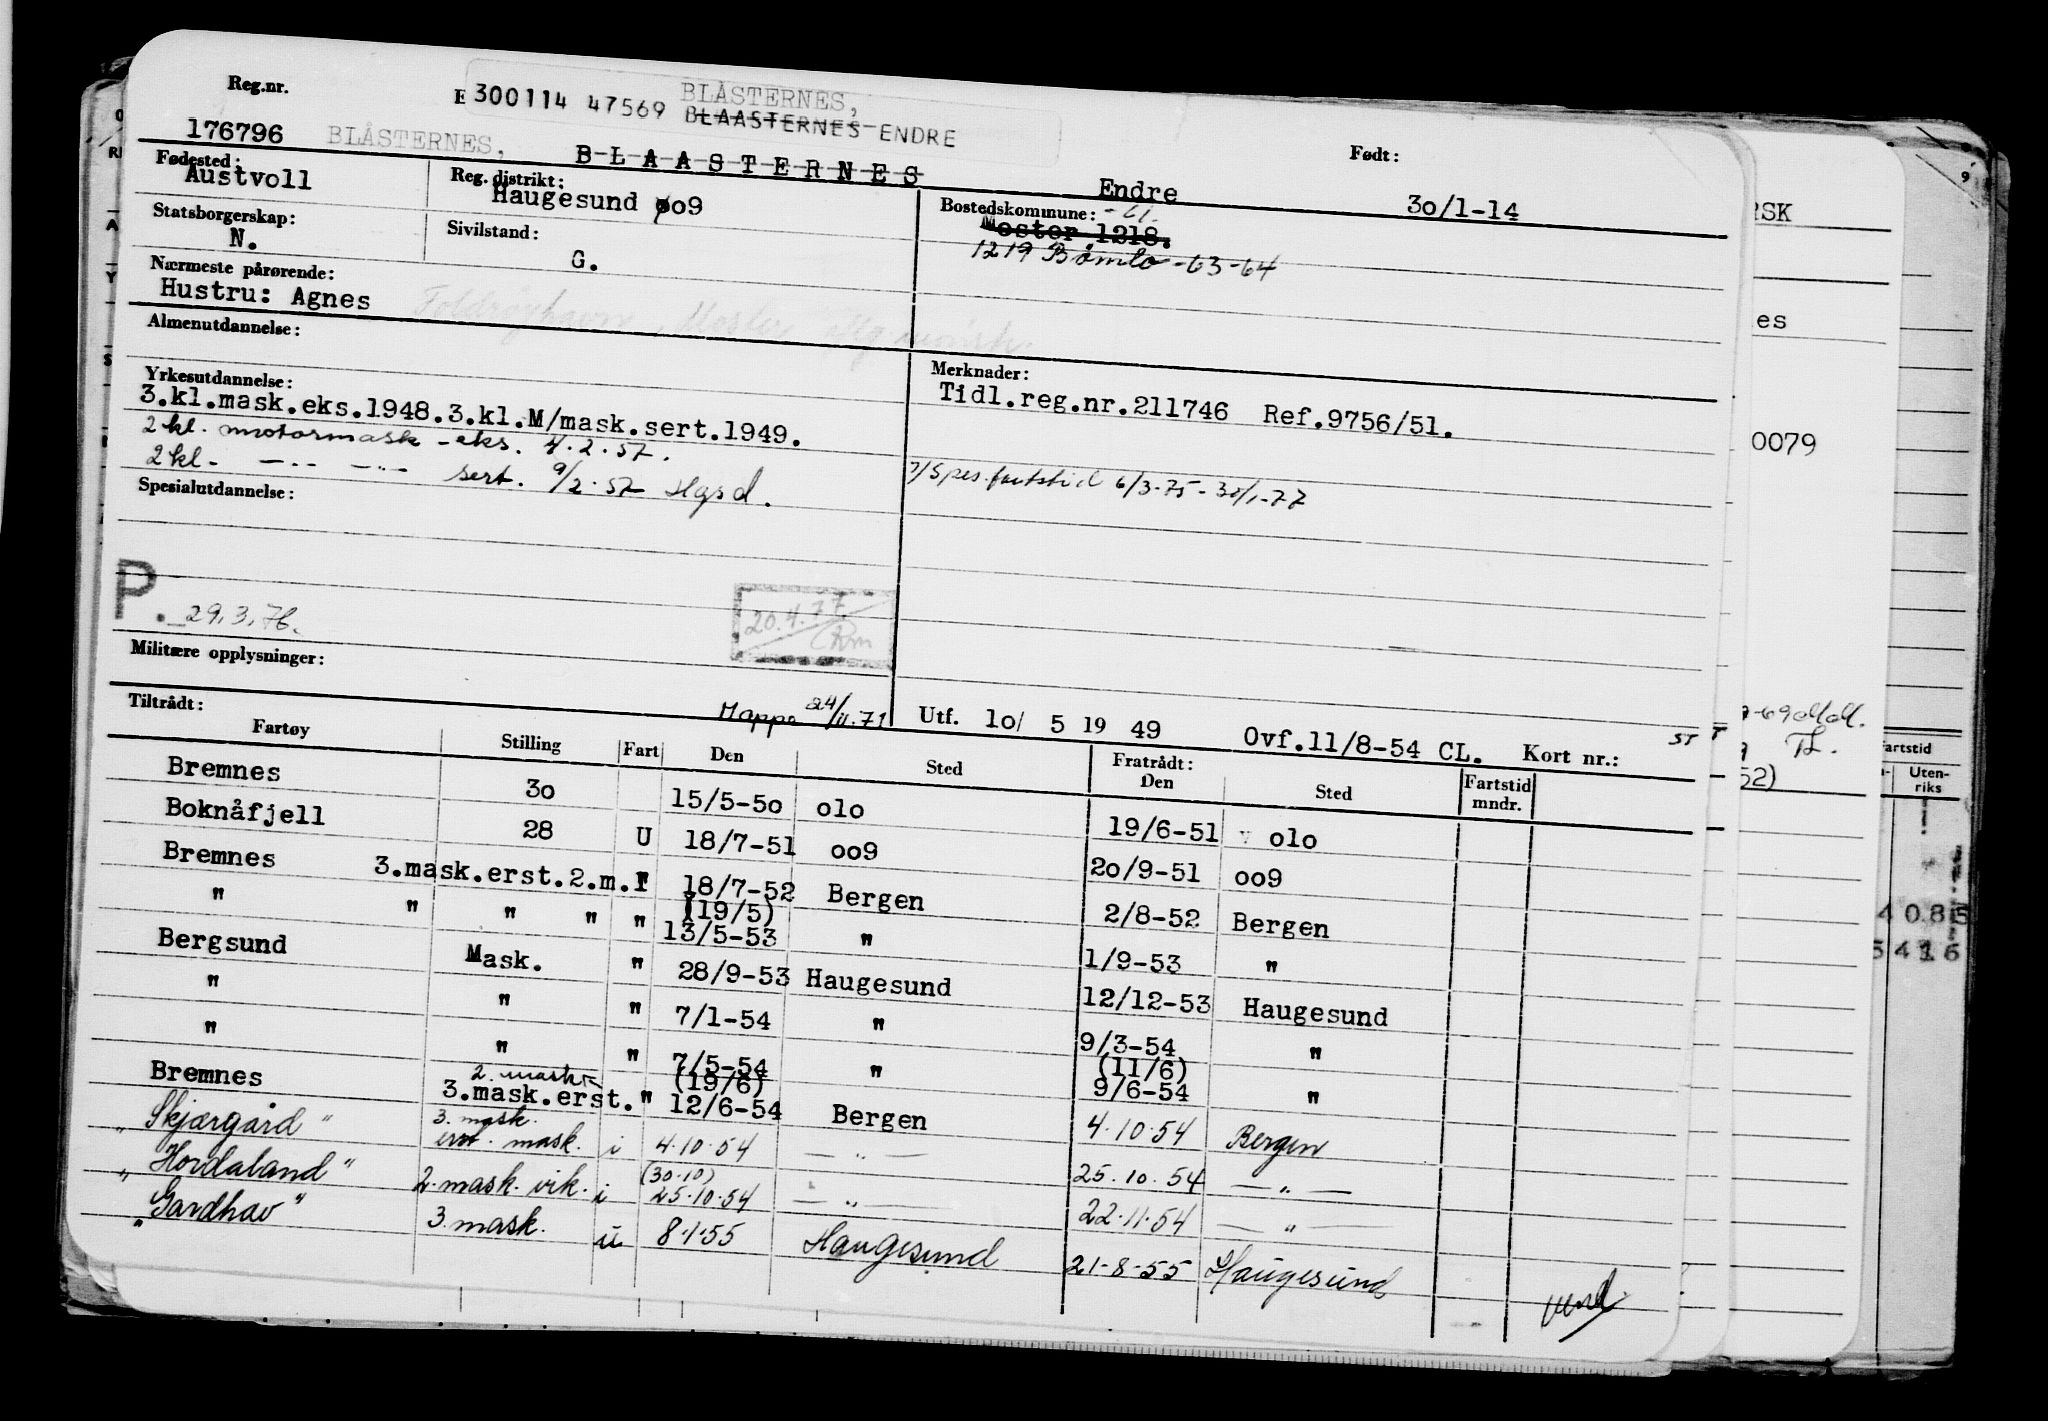 Reg.nr.
E 300114 47569 BLÅSTERNES,
BLAASTERNES ENDRE
176796 BLÅSTERNES, BLAASTERNES Endre
Født: 30/1-14
Fødested: Austvoll
Reg. distrikt: Haugesund 009
Bostedskommune: -61.
Moster 1218.
1219 Bømlo -63-64
Statsborgerskap: N.
Sivilstand: G.
Nærmeste pårørende:
Hustru: Agnes Foldrøyhavn, Moster
Almenutdannelse:
Yrkesutdannelse:
3.kl.mask.eks.1948.3.kl.M/mask.sert.1949.
2 kl. motormask - eks. 4.2.57.
2 kl. -..- -..- sert. 9/2.57 Hgsd.
Merknader:
Tidl.reg.nr.211746 Ref.9756/51.
Spes.fartstid 6/3-75 - 30/1-77
Spesialutdannelse:
P. 29.3.76.
20.4.77
Militære opplysninger:
Mappe 24/11.71
Utf. 10/ 5 19 49 Ovf.11/8-54 CL. Kort nr.:
ST T
Tiltrådt: Fratrådt:
Fartøy Stilling Fart Den Sted Den Sted Fartstid mndr.
Bremnes 30 15/5-50 010 19/6-51 010
Boknåfjell 28 U 18/7-51 009 20/9-51 009
Bremnes 3.mask.erst.2.m.I 18/7-52 Bergen 2/8-52 Bergen
" " " " " (19/5) 13/5-53 " 1/9-53 "
Bergsund Mask. " 28/9-53 Haugesund 12/12-53 Haugesund
" " " 7/1-54 " 9/3-54 "
" " " 7/5-54 " (11/6) 9/6-54 "
Bremnes 2. mask 3.mask.erst. " (19/6) 12/6-54 Bergen 4.10.54 Bergen
"Skjærgård" 3. mask. erst. mask. i 4.10.54 - " - 25.10.54 - " -
"Hordaland" 2. mask. vik. i (30.10) 25.10.54 - " - 22.11.54 - " -
"Gardhav" 3. mask. u 8.1.55 Haugesund 21-8-55 Haugesund
vend
RSK
es
0079
52)
Fartstid
Uten-
riks